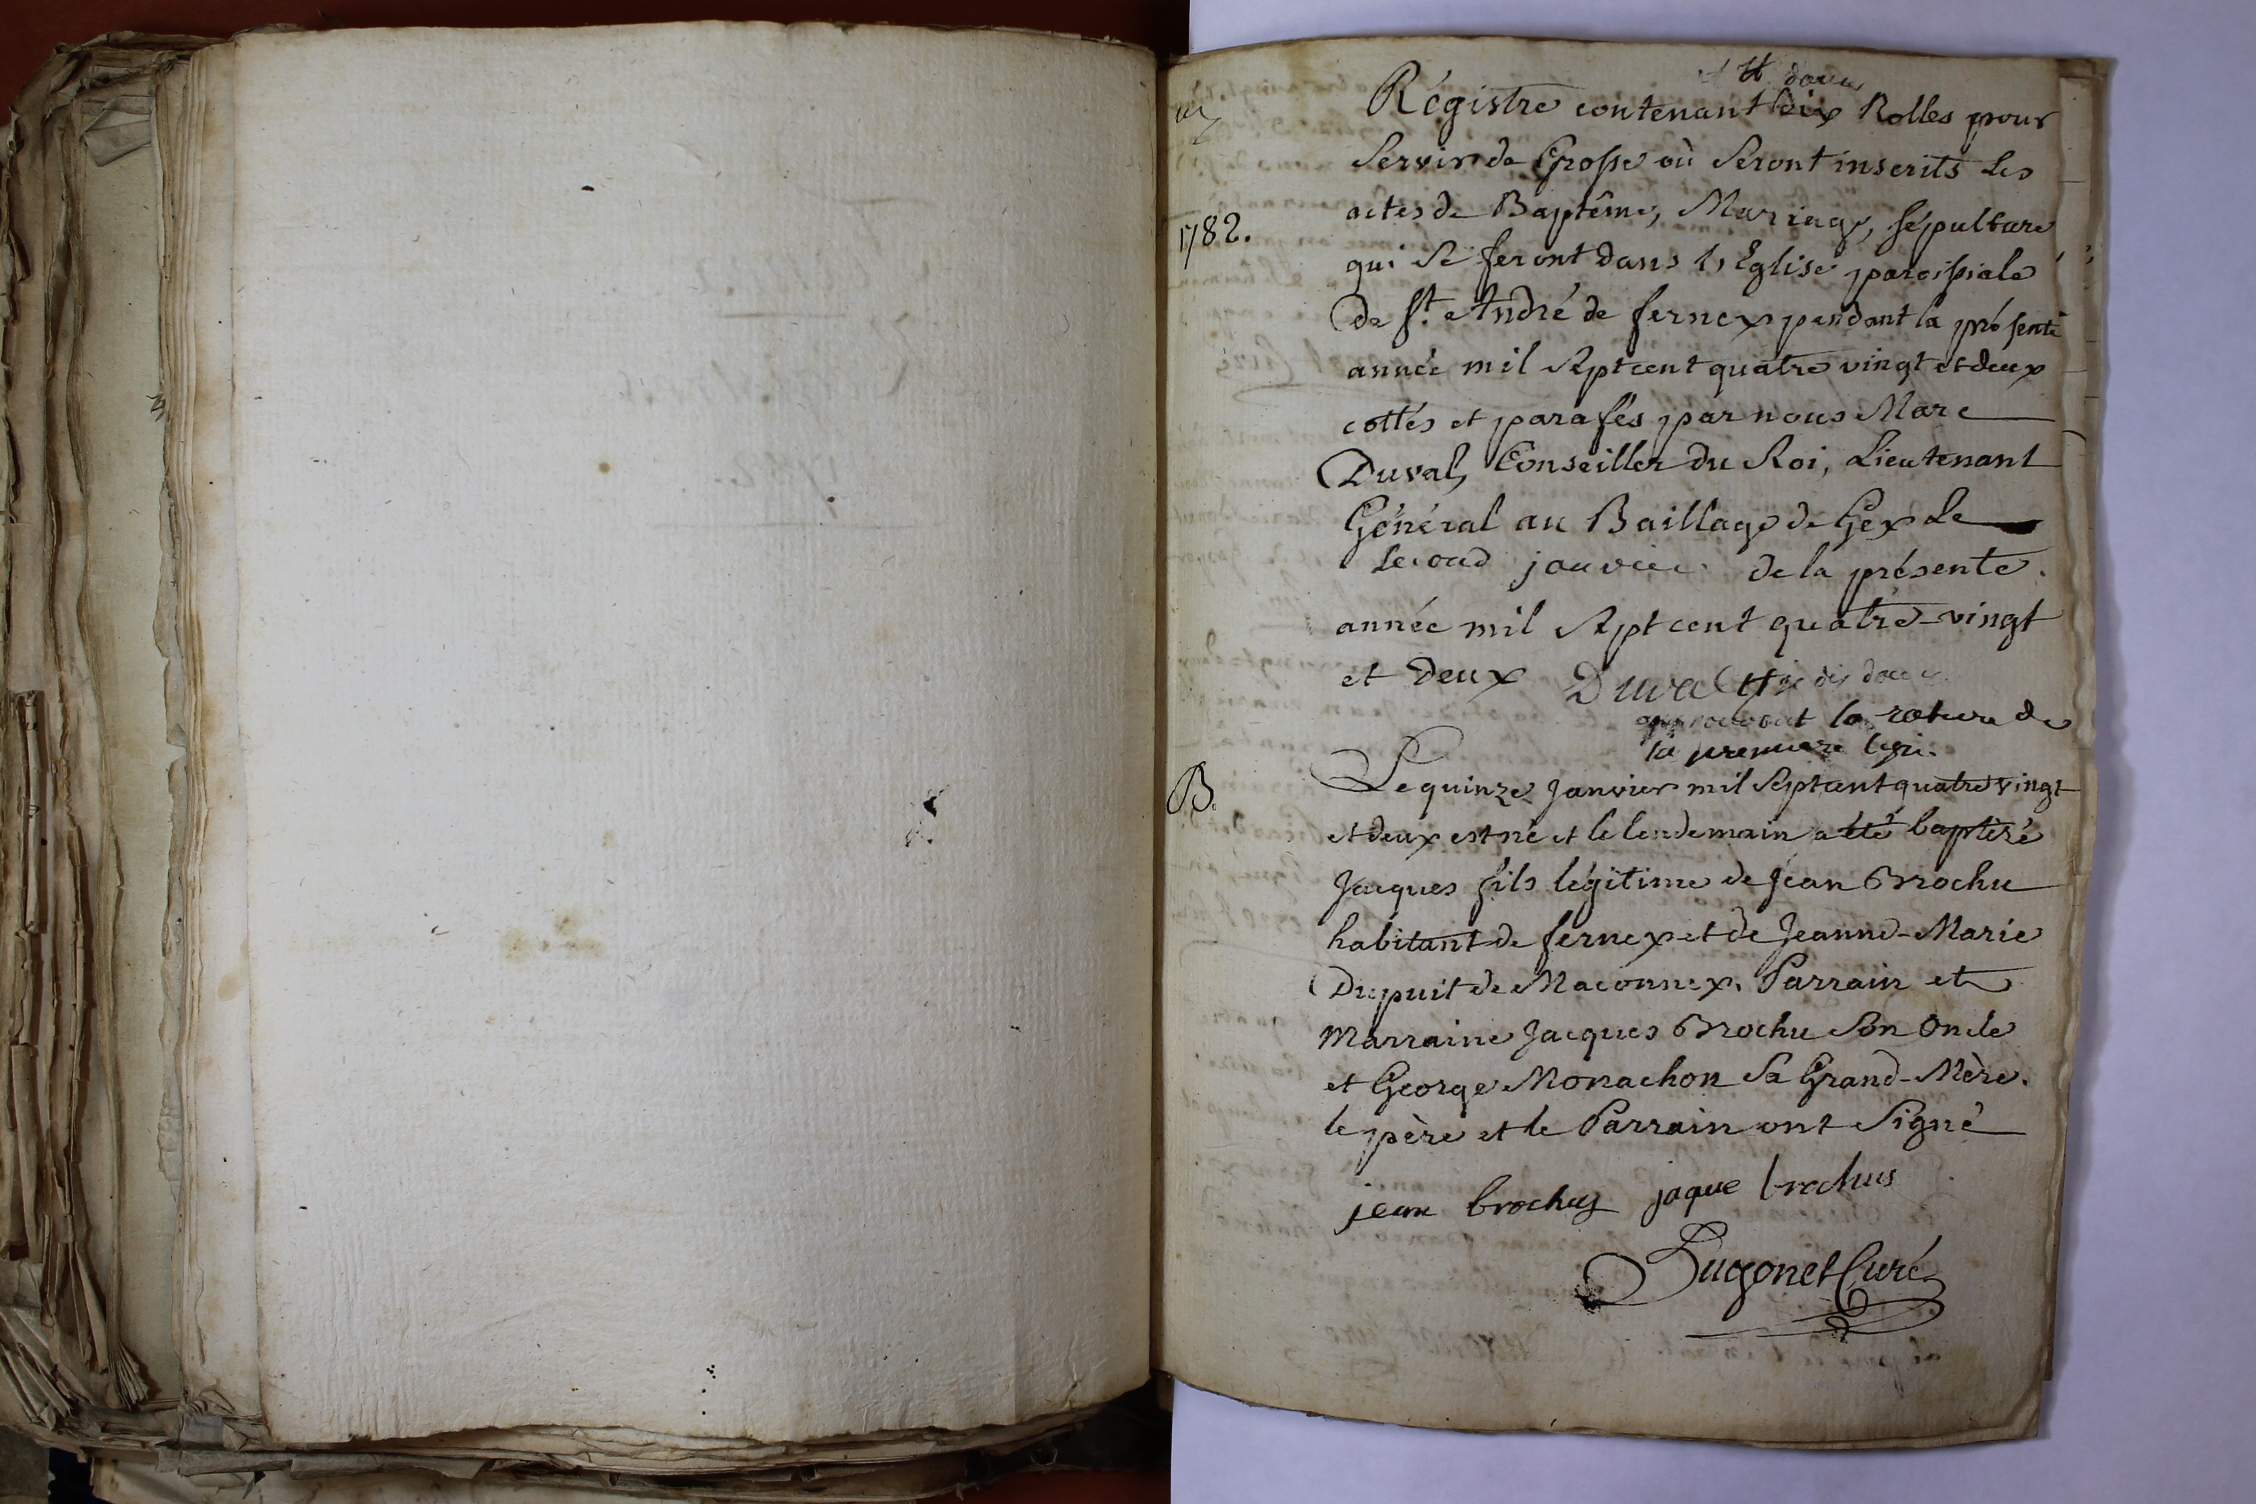 douze
Régistre contenant dix Rolles pour
Servir de Grosse où Seront inscrits Les
actes de Baptême, Mariage, sépulture
1782.
qui Se feront dans l'Eglise paroissiale
De St. André de fernex pendant la présente
année mil Sept cent quatre vingt et deux
cottés et parafés par nous Marc
Duval, Conseiller du Roi, Lieutenant
Général au Baillage de Gex Le
Second janvier de la présente
année mil Sept cent quatre-vingt
et Deux Duval je dis douze
approuvant la rature de
la premiere ligne.
B.
Le quinze Janvier mil Sept cent quatre vingt
et deux est né et le lendemain a été baptisé
Jacques fils légitime de Jean Brochu
habitant de fernex et de Jeanne-Marie
Dupuit de Maconnex. Parrain et
Marraine Jacques Brochu Son Oncle
et George Monachon Sa Grand-Mère.
le père et le Parrain ont Signé
jean brochus jaque brochus
Hugonet Curé